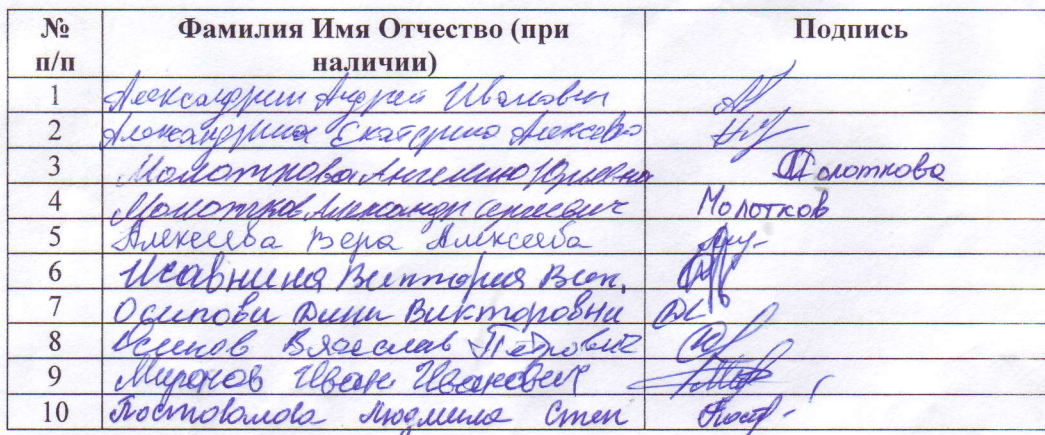 № п/п Фамилия Имя Отчество (при наличии) Подпись
1 Александрин Андрей Иванович
2 Александрина Екатерина Алексеева
3 Молоткова Ангелина Юрьевна Молоткова
4 Молотков Александр Сергеевич Молотков
5 Алексеева Вера Алексеева
6 Исавнина Виктория Вик.
7 Осипова Дина Викторовна
8 Осипов Вячеслав Петрович
9 Миронов Иван Иванович
10 Постовалова Людмила Степ